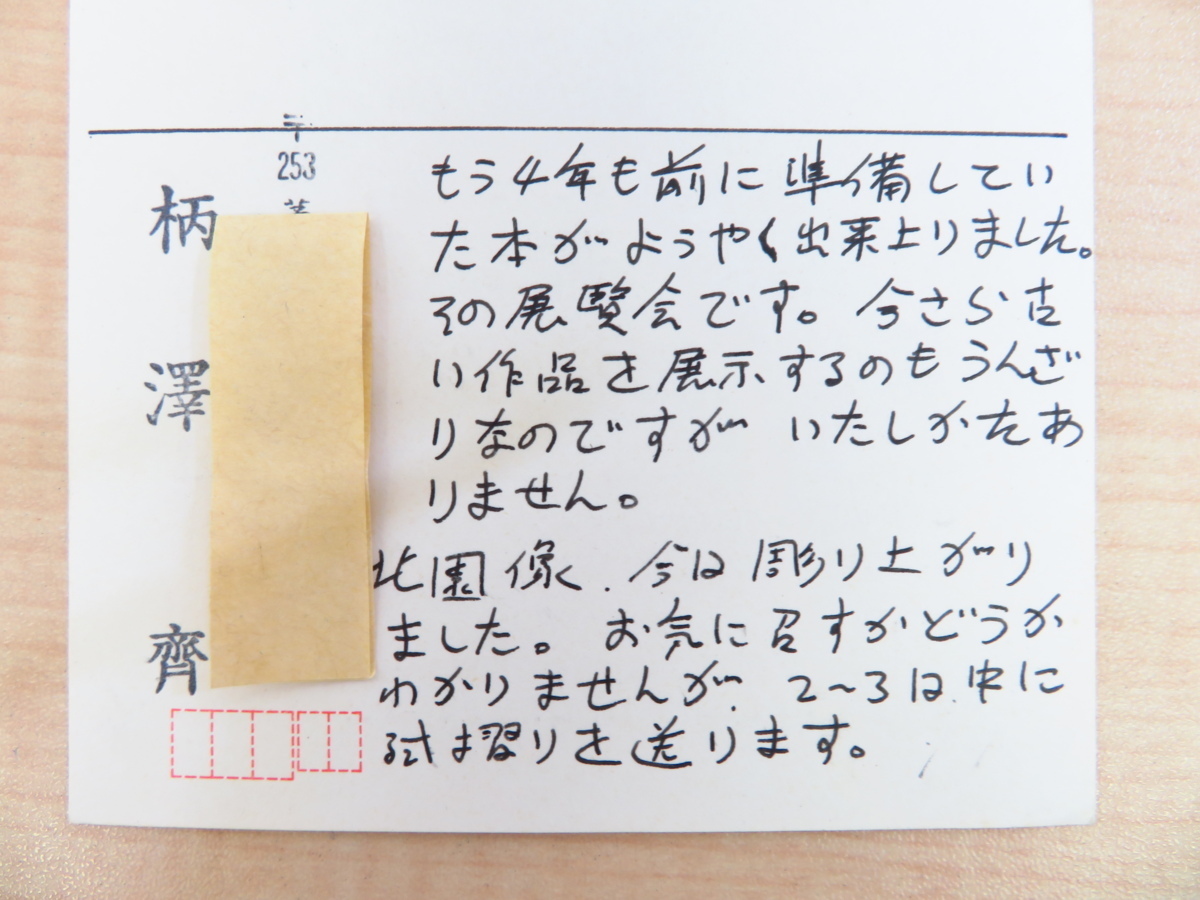 もう4年も前に準備してい
た本がようやく出来上りました。
その展覧会です。今さら古
い作品を展示するのもうんざ
りなのですが いたしかたあ
りません。
北園像、今日彫り上がり
ました。お気に召すかどうか
わかりませんが、2〜3日中に
試し摺りを送ります。
〒
253
柄澤齊